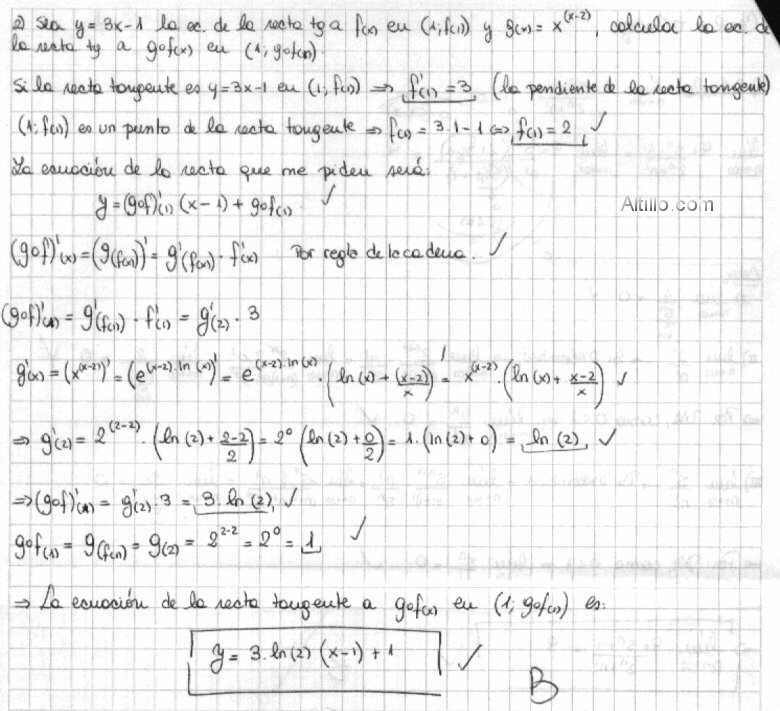 2) Sea y = 3x-1 la ec. de la recta tg a f(x) en (1; f(1)) y g(x) = x^(x-2), calcular la ec. de
la recta tg a gof(x) en (1, gof(1)).
Si la recta tangente es y=3x-1 en (1, f(1)) ⇒ f'(1) = 3, (la pendiente de la recta tangente)
(1; f(1)) es un punto de la recta tangente ⇒ f(1) = 3.1-1 ⇔ f(1) = 2 ✓
La ecuación de la recta que me piden será:
y = (gof)'(1) (x-1) + gof(1) ✓
Altillo.com
(gof)'(x) = (g(f(x)))' = g'(f(x)) · f'(x) Por regla de la cadena. ✓
(gof)'(1) = g'(f(1)) · f'(1) = g'(2) · 3
g'(x) = (x^(x-2))' = (e^(x-2).ln(x))' = e^(x-2).ln(x) · (ln(x) + (x-2)/x) = x^(x-2) · (ln(x) + x-2/x) ✓
⇒ g'(2) = 2^(2-2) · (ln(2) + 2-2/2) = 2^0 (ln(2) + 0/2) = 1. (ln(2) + 0) = ln(2), ✓
⇒ (gof)'(1) = g'(2) · 3 = 3. ln(2), ✓
gof(1) = g(f(1)) = g(2) = 2^2-2 = 2^0 = 1 ✓
⇒ La ecuación de la recta tangente a gof(x) en (1; gof(1)) es:
y = 3. ln(2) (x-1) + 1 ✓
B